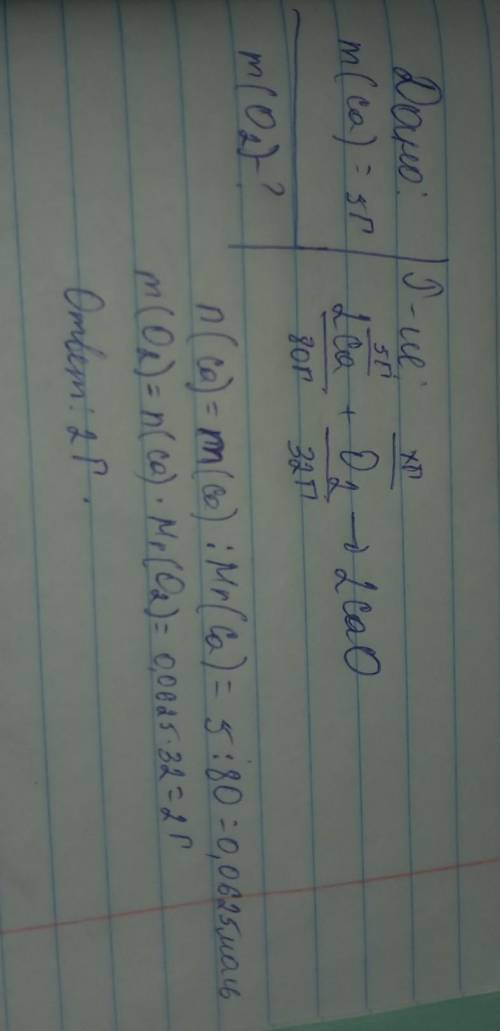 Дано:
m(Ca) = 5г
m(O2)-?
Р-ие:
5г хг
2Ca + O2 → 2CaO
80г 32г
n(Ca) = m(Ca) : Mr(Ca) = 5 : 80 = 0,0625моль
m(O2) = n(Ca) · Mr(O2) = 0,0625·32 = 2г
Ответ: 2г.